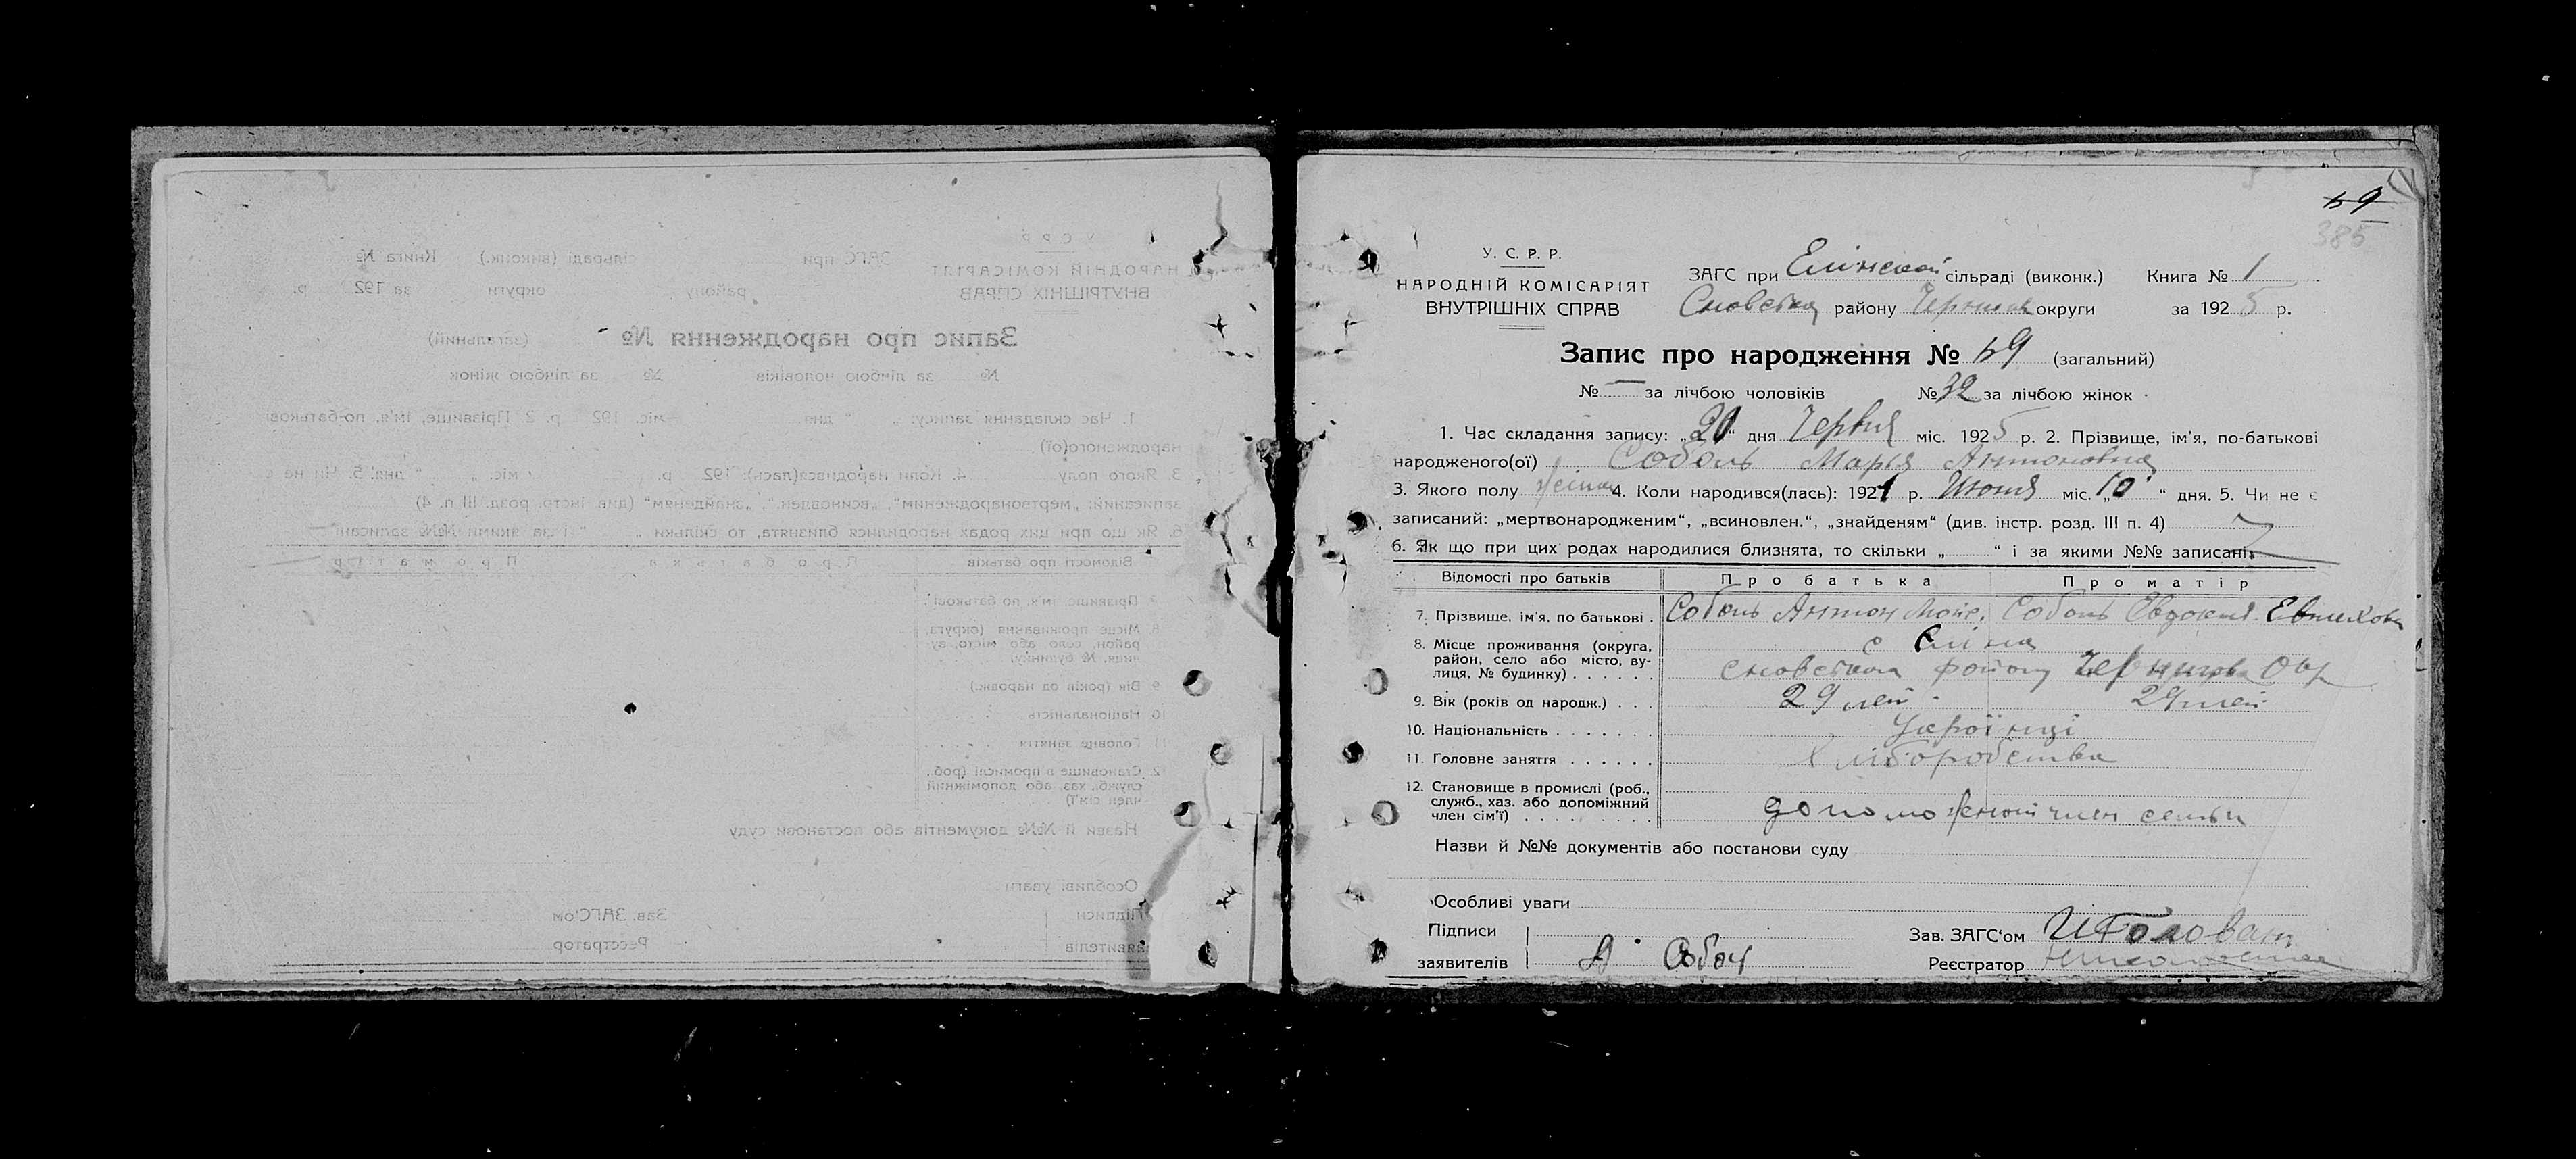 385
У. С. Р. Р.
НАРОДНІЙ КОМІСАРІЯТ
ВНУТРІШНІХ СПРАВ
ЗАГС при Елінской сільраді (виконк.) Книга № 1
Сновська району Чернигов округи за 1925 р.
Запис про народження № 59 (загальний)
№ — за лічбою чоловіків № 32 за лічбою жінок
1. Час складання запису: „20“ дня Червня міс. 1925 р. 2. Прізвище, ім'я, по-батькові
народженого(ої) Соболь Марья Антоновна
3. Якого полу женск 4. Коли народився(лась): 1921 р. Июня міс. „10“ дня. 5. Чи не є
записаний: „мертвонародженим“, „всиновлен.“, „знайденям“ (див. інстр. розд. III п. 4)
6. Як що при цих родах народилися близнята, то скільки „ “ і за якими №№ записані.
Відомості про батьків Про батька Про матір
7. Прізвище, ім'я, по батькові . Соболь Антон Моис. Соболь Евдокия Евтихов
8. Місце проживання (округа, район, село або місто, вулиця, № будинку) . . . . . . с Еліна
сновского району Чернигов Окр
9. Вік (років од народж.) . . . 29 лет 29 лет
10. Національність . . . . . . . Українці
11. Головне заняття . . . . . . Хліборобства
12. Становище в промислі (роб., служб., хаз. або допоміжний член сім'ї) . . . . . . . . . допоможний член семьи
Назви й №№ документів або постанови суду
Особливі уваги
Підписи
заявителів А Соболь
Зав. ЗАГС'ом И Головат
Реєстратор